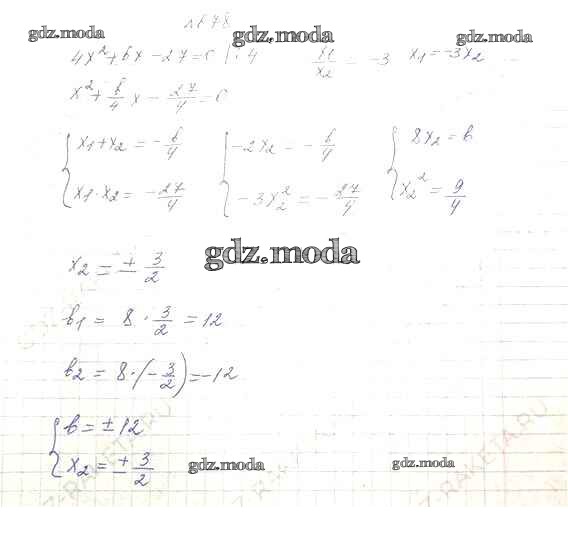 №678
gdz.moda gdz.moda gdz.moda
4x² + bx - 27 = 0 | : 4 x₁/x₂ = -3 x₁ = -3x₂
x² + b/4 x - 27/4 = 0
{ x₁ + x₂ = - b/4 { -2x₂ = - b/4 { 8x₂ = b
x₁ · x₂ = - 27/4 -3x₂² = - 27/4 x₂² = 9/4
gdz.moda
x₂ = ± 3/2
b₁ = 8 · 3/2 = 12
b₂ = 8 · (- 3/2) = -12
{ b = ± 12
x₂ = ± 3/2
gdz.moda gdz.moda